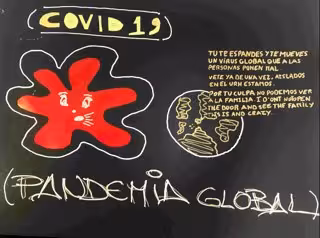 (COVID 19)
TU TE ESPANDES Y TE MUEVES
UN VIRUS GLOBAL QUE A LAS
PERSONAS PONEN MAL
VETE YA DE UNA VEZ, AISLADOS
EN EL URH ESTAMOS.
POR TU CULPA NO PODEMOS VER
A LA FAMILIA. I DON'T OPEN
THE DOOR AND SEE THE FAMILY
THIS IS AND CRAZY
(PANDEMIA GLOBAL)